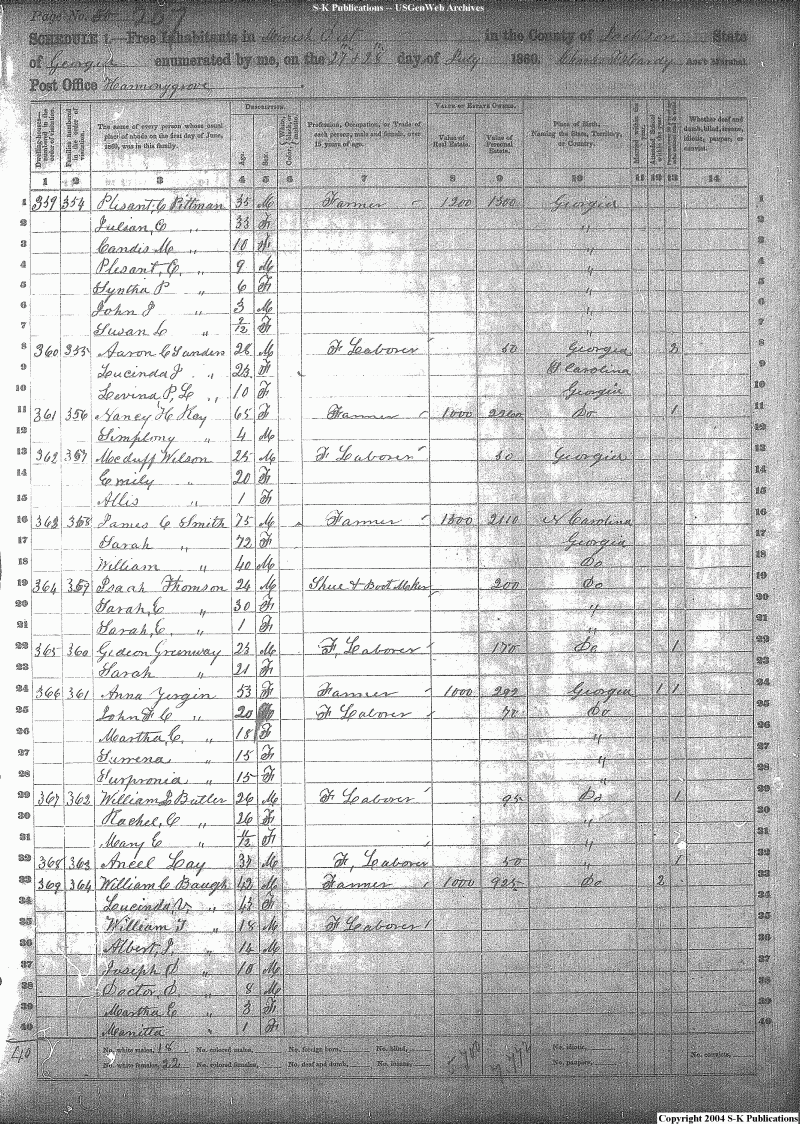 S-K Publications -- USGenWeb Archives
Page No. 257
SCHEDULE 1.—Free Inhabitants in Dist in the County of Jackson State
of Georgia enumerated by me, on the 27 & 28 day of July 1860. Ass't Marshal
Post Office Harmonygrove
DESCRIPTION. VALUE OF ESTATE OWNED.
Dwelling-houses—numbered in the order of visitation. Families numbered in the order of visitation. The name of every person whose usual place of abode on the first day of June, 1860, was in this family. Age. Sex. Color, White, black, or mulatto. Profession, Occupation, or Trade of each person, male and female, over 15 years of age. Value of Real Estate. Value of Personal Estate. Place of Birth, Naming the State, Territory, or Country. Married within the year. Attended School within the year. Whether deaf and dumb, blind, insane, idiotic, pauper, or convict.
1 2 3 4 5 6 7 8 9 10 11 12 13 14
1 359 354 Plesant, C Pittman 35 M Farmer 1200 1300 Georgia 1
2 Julian, C " 33 F " 2
3 Candis M " 10 F " 3
4 Plesant, C, " 9 M " 4
5 Syntha P " 6 F " 5
6 John J " 3 M " 6
7 Susan C " 2/12 F " 7
8 360 355 Aaron C Sanders 26 M F Laborer 50 Georgia 2 8
9 Lucinda J " 23 F S Carolina 9
10 Levina P, L " 10 F Georgia 10
11 361 356 Nancy H Key 65 F Farmer 1000 2200 Do 1 11
12 Simphony " 4 M 12
13 362 357 Mcduff Wilson 25 M F Laborer 50 Georgia 13
14 Emily " 20 F 14
15 Allis " 1 F 15
16 363 358 James C Smith 75 M Farmer 1300 2110 N Carolina 16
17 Sarah " 72 F Georgia 17
18 William " 40 M Do 18
19 364 359 Isaah Thomson 24 M Shue & Boot Maker 200 Do 19
20 Sarah, C " 30 F " 20
21 Sarah, C, " 1 F " 21
22 365 360 Gideon Greenway 23 M F, Laborer 170 Do 1 22
23 Sarah " 21 F 23
24 366 361 Anna Yergin 53 F Farmer 1000 292 Georgia 1 1 24
25 John F C " 20 M F Laborer 70 Do 25
26 Martha, C, " 18 F " 26
27 Surrena " 15 F " 27
28 Surpronia " 15 F " 28
29 367 362 William L Butler 26 M F Laborer 95 Do 1 29
30 Rachel, C " 26 F " 30
31 Mary C " F " 31
32 368 363 Ancel Lay 37 M F, Laborer 50 " 1 32
33 369 364 William C Baugh 42 M Farmer 1000 925 Do 2 33
34 Lucinda, V, " 43 F 34
35 William T " 18 M F Laborer 35
36 Albert, J, " 14 M 36
37 Joseph D " 10 M 37
38 Doctor, D " 8 M 38
39 Martha C " 3 F 39
40 Manitta " 1 F 40
40 No. white males, 18 No. colored males, No. foreign born, No. blind, No. idiotic,
No. white females, 22 No. colored females, No. deaf and dumb, No. insane, No. paupers, No. convicts,
Copyright 2004 S-K Publications